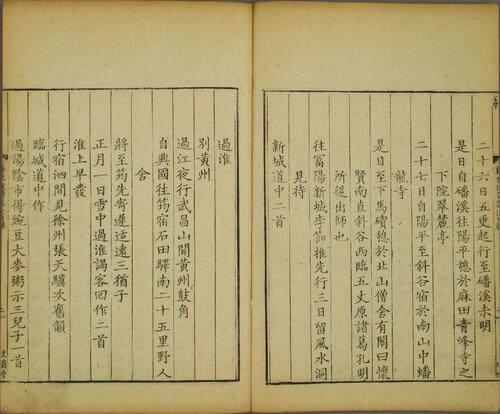 二十六日五更起行至磻溪未明
是日自磻溪往陽平憩於麻田青峰寺之
下院翠麓亭
二十七日自陽平至斜谷宿於南山中蟠
龍寺
是日至下馬磧憩於北山僧舍有閣曰懷
賢南直斜谷西臨五丈原諸葛孔明
所從出師也
往富陽新城李節推先行三日留風水洞
見待
新城道中二首
過淮
別黃州
過江夜行武昌山聞黃州鼓角
自興國往筠宿石田驛南二十五里野人
舍
將至筠先寄遲适遠三猶子
正月一日雪中過淮謁客回作二首
淮上早發
行宿泗間見徐州張天驥次舊韻
臨城道中作
過湯陰市得豌豆大麥粥示三兒子一首